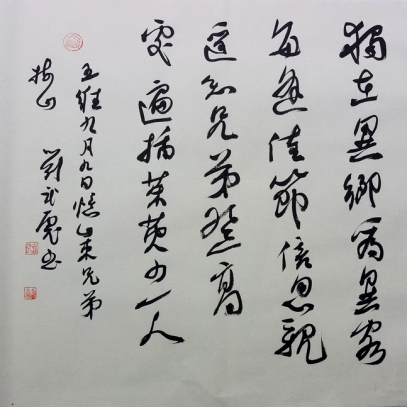 獨在異鄉為異客
每逢佳節倍思親
遙知兄弟登高
處遍插茱萸少一人
王維九月九日憶山東兄弟
山 劉武 書